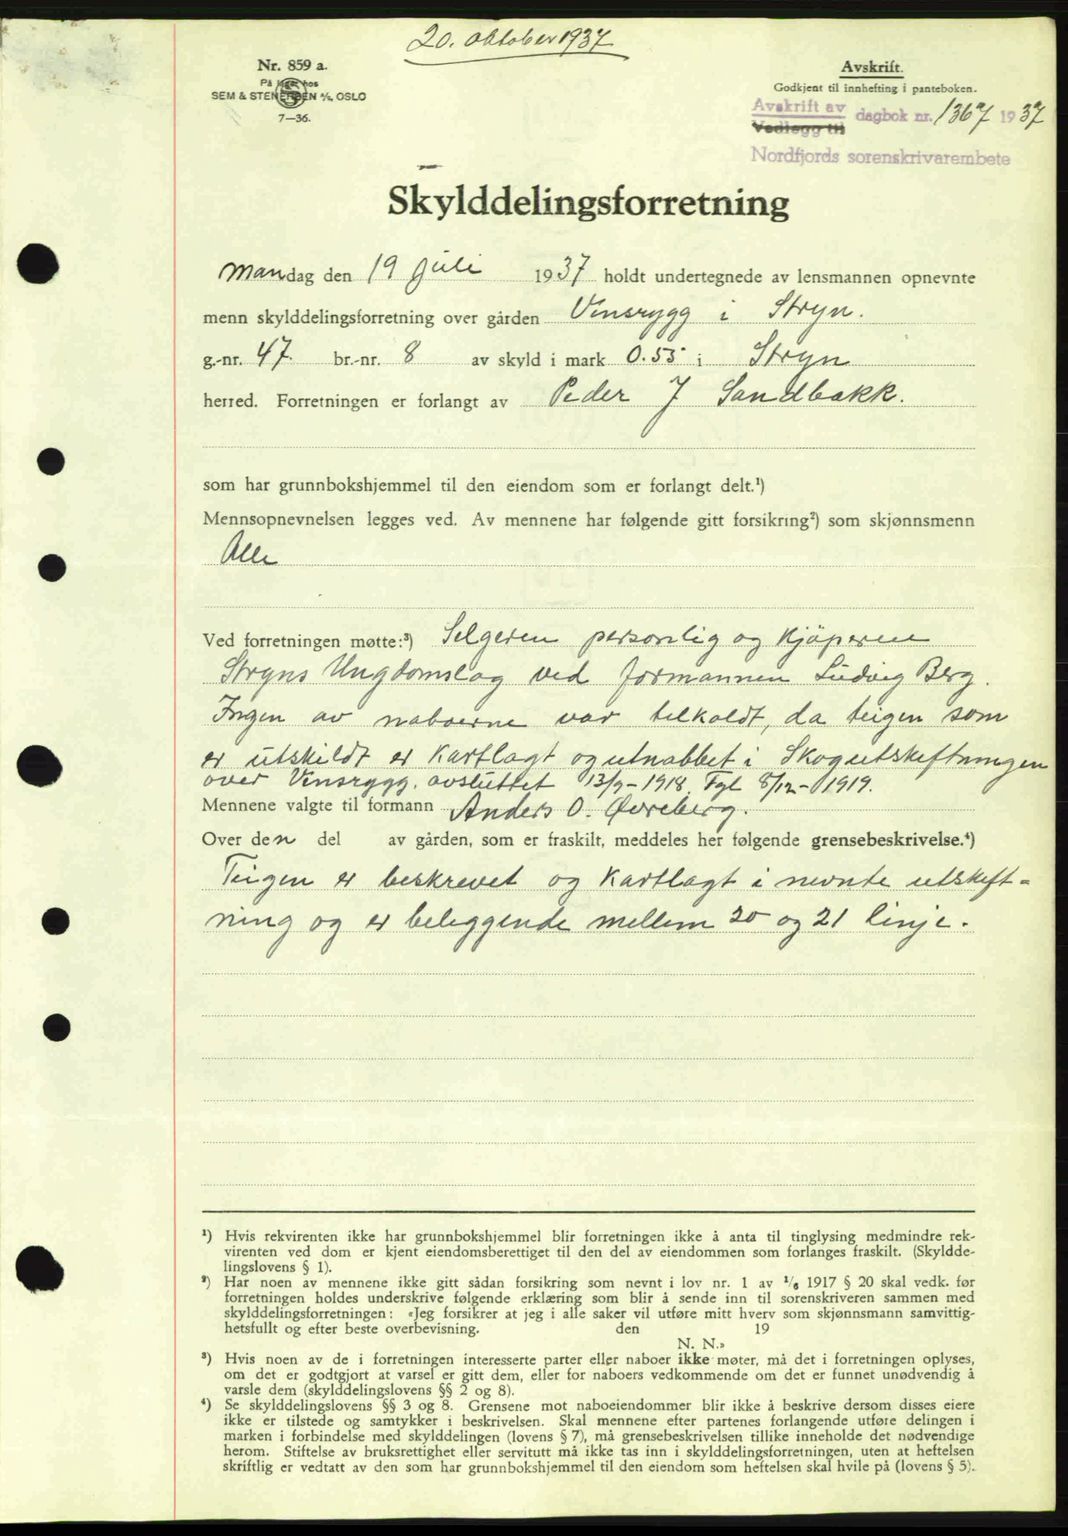 20. oktober 1937
Nr. 859 a.
På lager hos
SEM & STENERSEN A/S, OSLO
7—36.
Avskrift.
Godkjent til innhefting i panteboken.
Avskrift av
Vedlegg til
dagbok nr. 1367 1937
Nordfjords sorenskrivarembete
Skylddelingsforretning
Mandag den 19 juli 1937 holdt undertegnede av lensmannen opnevnte
menn skylddelingsforretning over gården Vinsrygg i Stryn.
g.-nr. 47. br.-nr. 8 av skyld i mark 0.55 i Stryn
herred. Forretningen er forlangt av Peder J Sandbakk.
som har grunnbokshjemmel til den eiendom som er forlangt delt.¹)
Mennsopnevnelsen legges ved. Av mennene har følgende gitt forsikring²) som skjønnsmenn
Alle
Ved forretningen møtte:³) Selgeren personlig og kjöperen
Stryns Ungdomslag ved formannen Ludvig Berg.
Ingen av naboerne var tilkaldt, da teigen som
er utskildt er kartlagt og utnabbet i Skogutskiftningen
over Vinsrygg. avsluttet 13/9-1918. Tgl 8/12-1919.
Mennene valgte til formann Anders O. Øvreberg.
Over den del av gården, som er fraskilt, meddeles her følgende grensebeskrivelse.⁴)
Teigen er beskrevet og kartlagt i nevnte utskift-
ning og er beliggende mellem 20 og 21 linje.
¹) Hvis rekvirenten ikke har grunnbokshjemmel blir forretningen ikke å anta til tinglysing medmindre rek-
virenten ved dom er kjent eiendomsberettiget til den del av eiendommen som forlanges fraskilt. (Skyldde-
lingslovens § 1).
²) Har noen av mennene ikke gitt sådan forsikring som nevnt i lov nr. 1 av 1/6 1917 § 20 skal vedk. før
forretningen holdes underskrive følgende erklæring som blir å sende inn til sorenskriveren sammen med
skylddelingsforretningen: «Jeg forsikrer at jeg i alle saker vil utføre mitt hverv som skjønnsmann samvittig-
hetsfullt og efter beste overbevisning. den 19
N. N.»
³) Hvis noen av de i forretningen interesserte parter eller naboer ikke møter, må det i forretningen oplyses,
om det er godtgjort at varsel er gitt dem, eller for naboers vedkommende om det er funnet unødvendig å
varsle dem (skylddelingslovens §§ 2 og 8).
⁴) Se skylddelingslovens §§ 3 og 8. Grensene mot naboeiendommer blir ikke å beskrive dersom disses eiere
ikke er tilstede og samtykker i beskrivelsen. Skal mennene efter partenes forlangende utføre delingen i
marken i forbindelse med skylddelingen (lovens § 7), må grensebeskrivelsen tillike inneholde det nødvendige
herom. Stiftelse av bruksrettighet eller servitutt må ikke tas inn i skylddelingsforretningen, uten at heftelsen
skriftlig er vedtatt av den som har grunnbokshjemmel til den eiendom som heftelsen skal hvile på (lovens § 5).